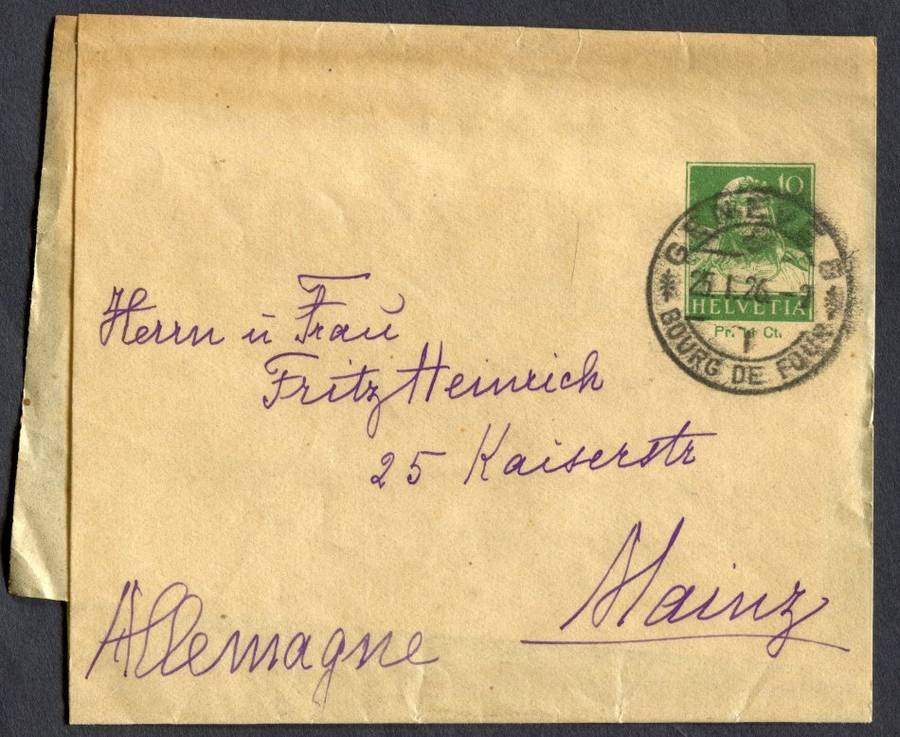 10
HELVETIA
Pr. Ct.
GENÈVE 8
BOURG DE FOUR
Herrn u Frau
Fritz Heinrich
25 Kaiserstr
Mainz
Allemagne